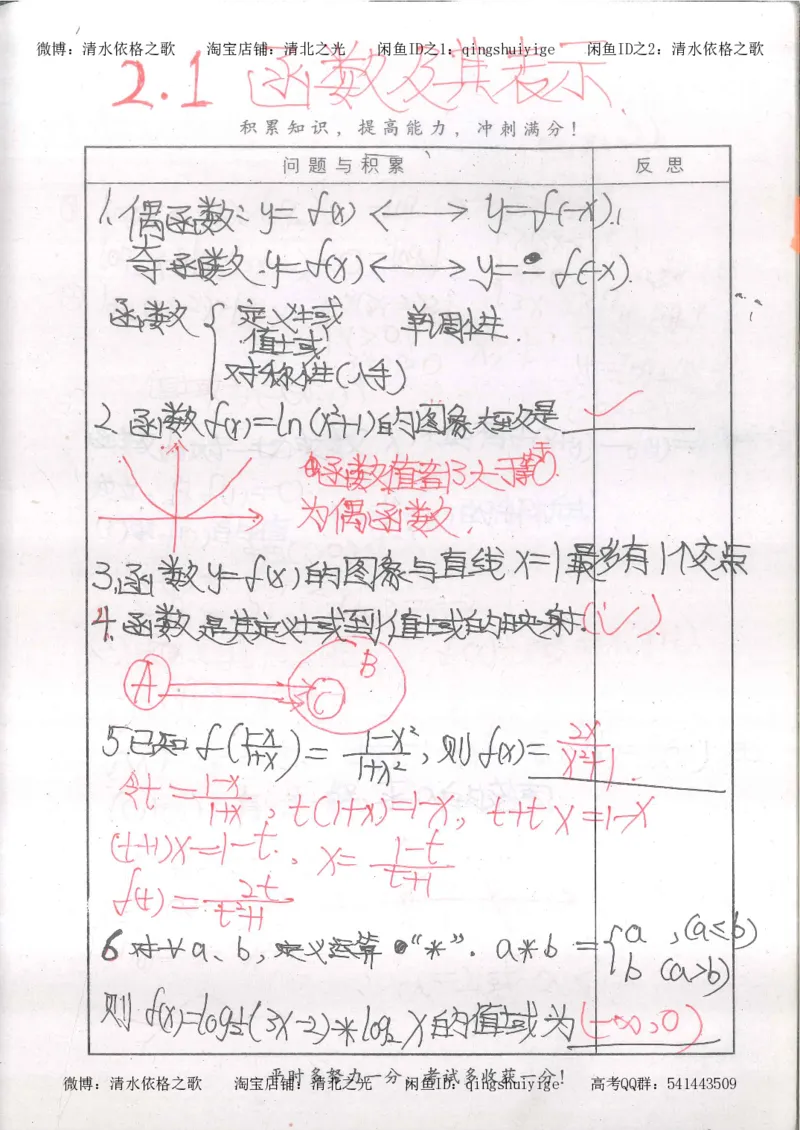 微博：清水依格之歌 淘宝店铺：清北之光 闲鱼ID之1：qingshuiyige 闲鱼ID之2：清水依格之歌
2.1 函数及其表示
积累知识，提高能力，冲刺满分！
问题与积累 反思
1. 偶函数：y=f(x) ⟷ y=f(-x).
奇函数.y=f(x) ⟷ y=-f(-x).
函数 { 定义域 单调性.
值域
对称性(八字)
2. 函数f(x)=ln(x²+1)的图象大致是____
函数值都是大于等于0.
为偶函数.
3. 函数y=f(x)的图象与直线x=1最多有1个交点
4. 函数是其定义域到值域的映射.(✓)
A B C
5.已知f((1-x)/(1+x))=(1-x²)/(1+x²), 则f(x)=2x/(x²+1).
令t=(1-x)/(1+x), t(1+x)=1-x, t+tx=1-x
(t+1)x=1-t. , x=(1-t)/(t+1)
f(t)=2t/(t²+1)
6 对∀a、b,定义运算“*”. a*b={a ,(a≤b)
b (a>b)
则f(x)=log½(3x-2)*log₂x的值域为(-∞,0)
平时多努力一分，考试多收获一分！
微博：清水依格之歌 淘宝店铺：清北之光 闲鱼ID：qingshuiyige 高考QQ群：541443509